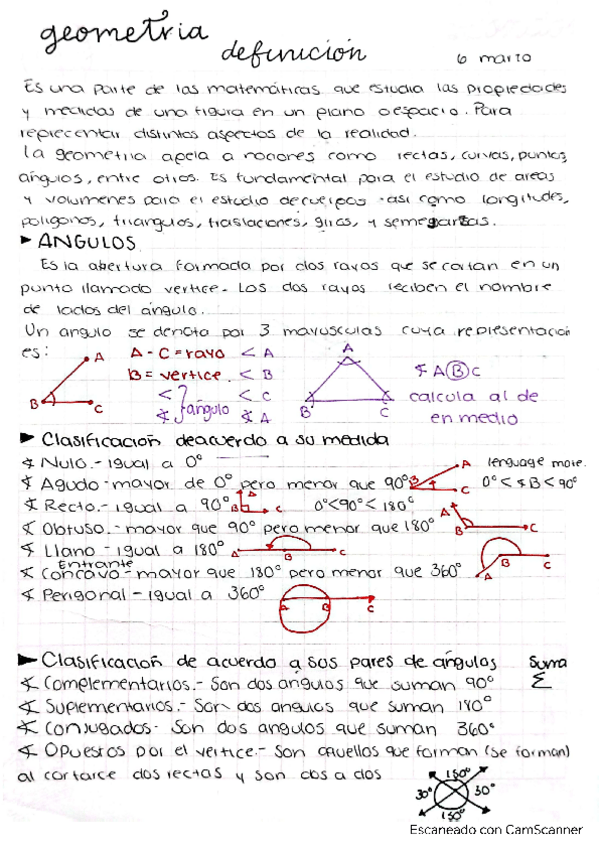 geometria
definición
6 marzo
Es una parte de las matemáticas que estudia las propiedades
y medidas de una figura en un plano o espacio. Para
reprecentar distintos aspectos de la realidad.
la geometria apela a nociones como rectas, curvas, puntos,
angulos, entre otros. Es fundamental para el estudio de areas
y volumenes para el estudio de cuerpos asi como longitudes,
poligonos, triangulos, traslaciones, giros, y
► ANGULOS
Es la abertura formada por dos rayos que se cortan en un
punto llamado vertice. Los dos rayos reciben el nombre
de lados del ángulo.
Un angulo se denota por 3 mayusculas cuya representación
es:
A
B
C
A - C = rayo < A
B = vertice. < B
< } ángulo < C
∢ ∢ A
A
B
C
∢ A B C
calcula al de
en medio
► Clasificación deacuerdo a su medida
∢ Nulo.- igual a 0°
∢ Agudo - mayor de 0° pero menor que 90°
A
B
C
lenguage mate.
0° < ∢ B < 90°
∢ Recto.- igual a 90°
A
B
C
0°<90°< 180°
∢ Obtuso.- mayor que 90° pero menor que 180°
A
B
C
∢ Llano - igual a 180°
A
B
C
Entrante
∢ Concavo - mayor que 180° pero menor que 360°
A
B
C
∢ Perigonal - igual a 360°
A
B
C
► Clasificación de acuerdo a sus pares de ángulos
Suma
Σ
∢ Complementarios.- Son dos angulos que suman 90°
∢ Suplementarios.- Son dos angulos que suman 180°
∢ Conjugados- Son dos angulos que suman 360°
∢ Opuestos por el vertice.- Son aquellos que forman (se forman)
al cortarce dos rectas y son dos a dos
150°
30°
30°
150°
Escaneado con CamScanner